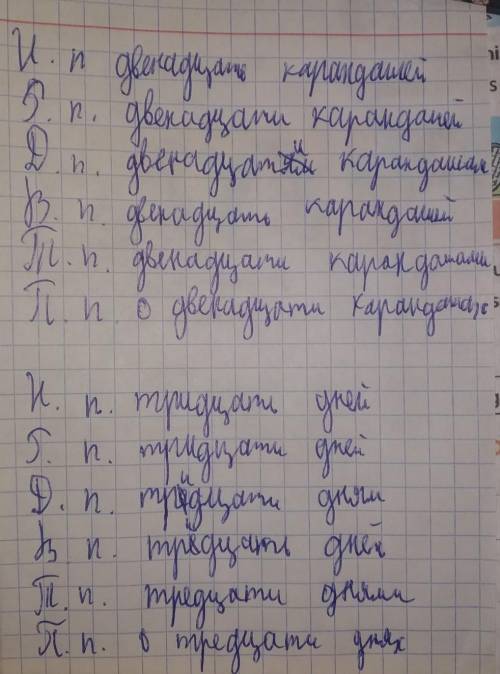 И. п двенадцать карандашей
Р. п. двенадцати карандашей
Д. п. двенадцати карандашам
В. п. двенадцать карандашей
Т. п. двенадцати карандашами
П. п. о двенадцати карандашах
И. п. тридцать дней
Р. п. тридцати дней
Д. п. тридцати дням
В п. тридцать дней
Т. п. тредцати днями
П. п. о тредцати днях